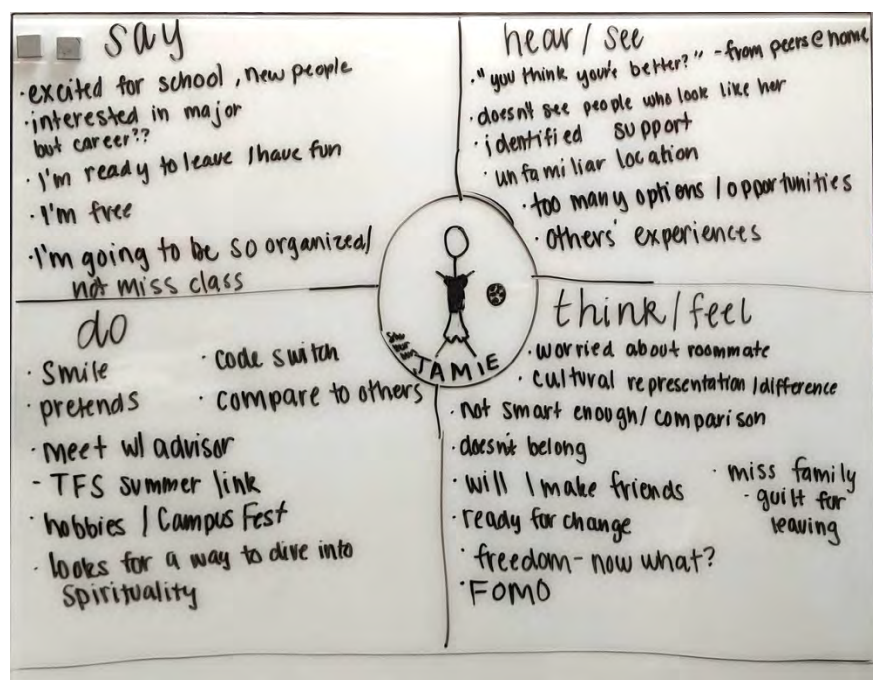 say
·excited for school, new people
·interested in major
but career??
·I'm ready to leave /have fun
·I'm free
·I'm going to be so organized/
not miss class
hear/see
·"you think you're better?" -from peers@home
·doesn't see people who look like her
·identified support
·unfamiliar location
·too many options/opportunities
·others' experiences
JAMIE
do
·Smile
·pretends
·code switch
·compare to others
·meet w/ advisor
- TFS summer link
·hobbies / Campus Fest
·looks for a way to dive into
Spirituality
think/feel
·worried about roommate
·cultural representation/difference
·not smart enough/comparison
·doesn't belong
·will I make friends
·ready for change
·freedom- now what?
·FOMO
·miss family
- guilt for
leaving